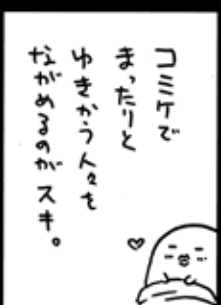 コミケで
まったりと
ゆきかう人々を
ながめるのがスキ。